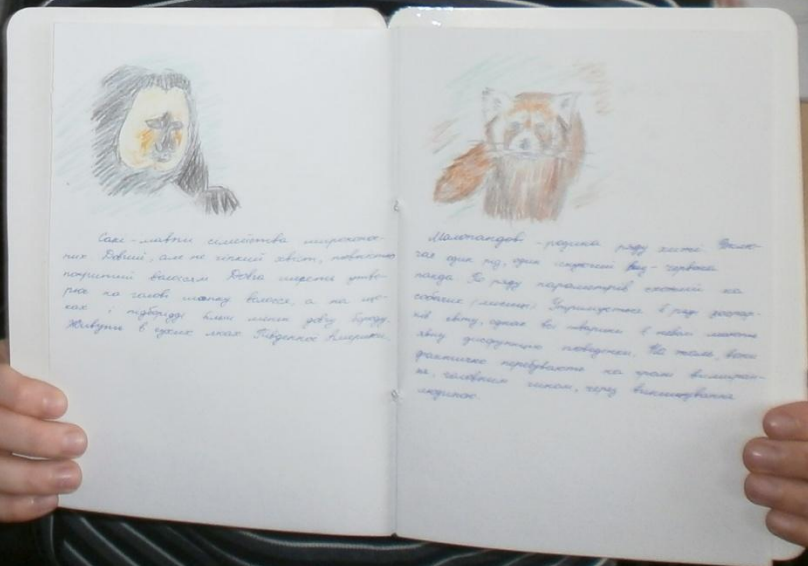 Сакі - мавпи семейства широконо-
сих Довгий, але не гіпкий хвіст, повністю
покритий волоссям Довга шерсть утво-
рює на голові шапку волосся, а на що-
ках і підборідді більш менш довгу бороду.
Живуть в сухих лісах Південної Америки.
Малопандові - родина ряду хижі. Вклю-
чає один рід, один існуючий вид - червона
панда По ряду параметрів схожий на
собачих (лисиці) Утримується в ряді зоопар-
ків світу, однак всі тварини в неволі мають
явну поведінки. На жаль, вони
фактично перебувають на грані вимиран-
ня, головним чином, через винищування
людиною.